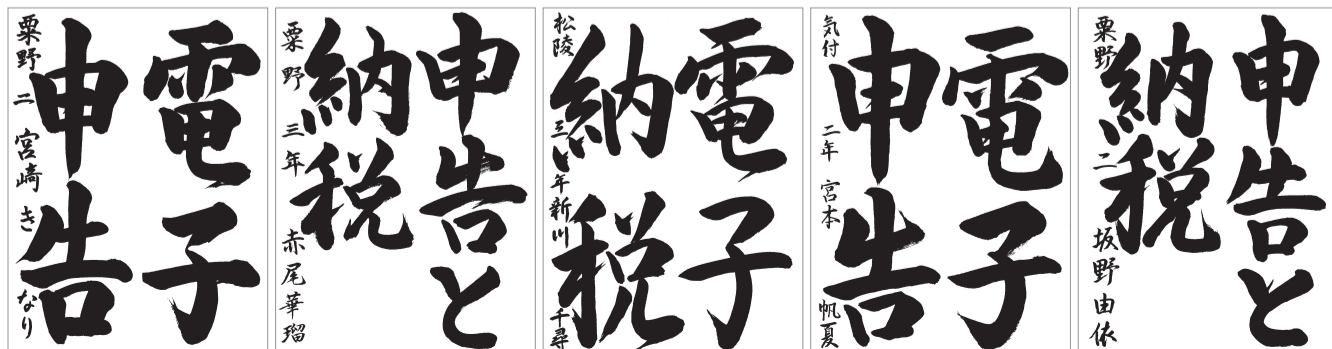 電子
申告
粟野 二 宮崎 きなり
申告と
納税
粟野 三年 赤尾華瑠
電子
納税
松陵 三年 新川千尋
電子
申告
気付 二年 宮本帆夏
申告と
納税
粟野 二 坂野由依